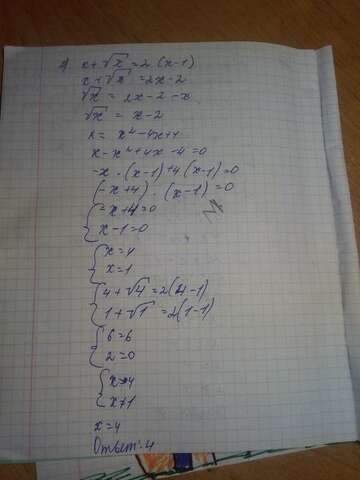 2) x+√x=2(x-1)
x+√x=2x-2
√x = 2x-2-x
√x = x-2
x = x⁴-4x+4
x-x⁴+4x-4=0
-x·(x-1)+4(x-1)=0
(-x+4)·(x-1)=0
{-x+4=0
x-1=0
{x=4
x=1
{4+√4=2(4-1)
1+√1=2(1-1)
{6=6
2=0
{x=4
x≠1
x=4
Ответ: 4